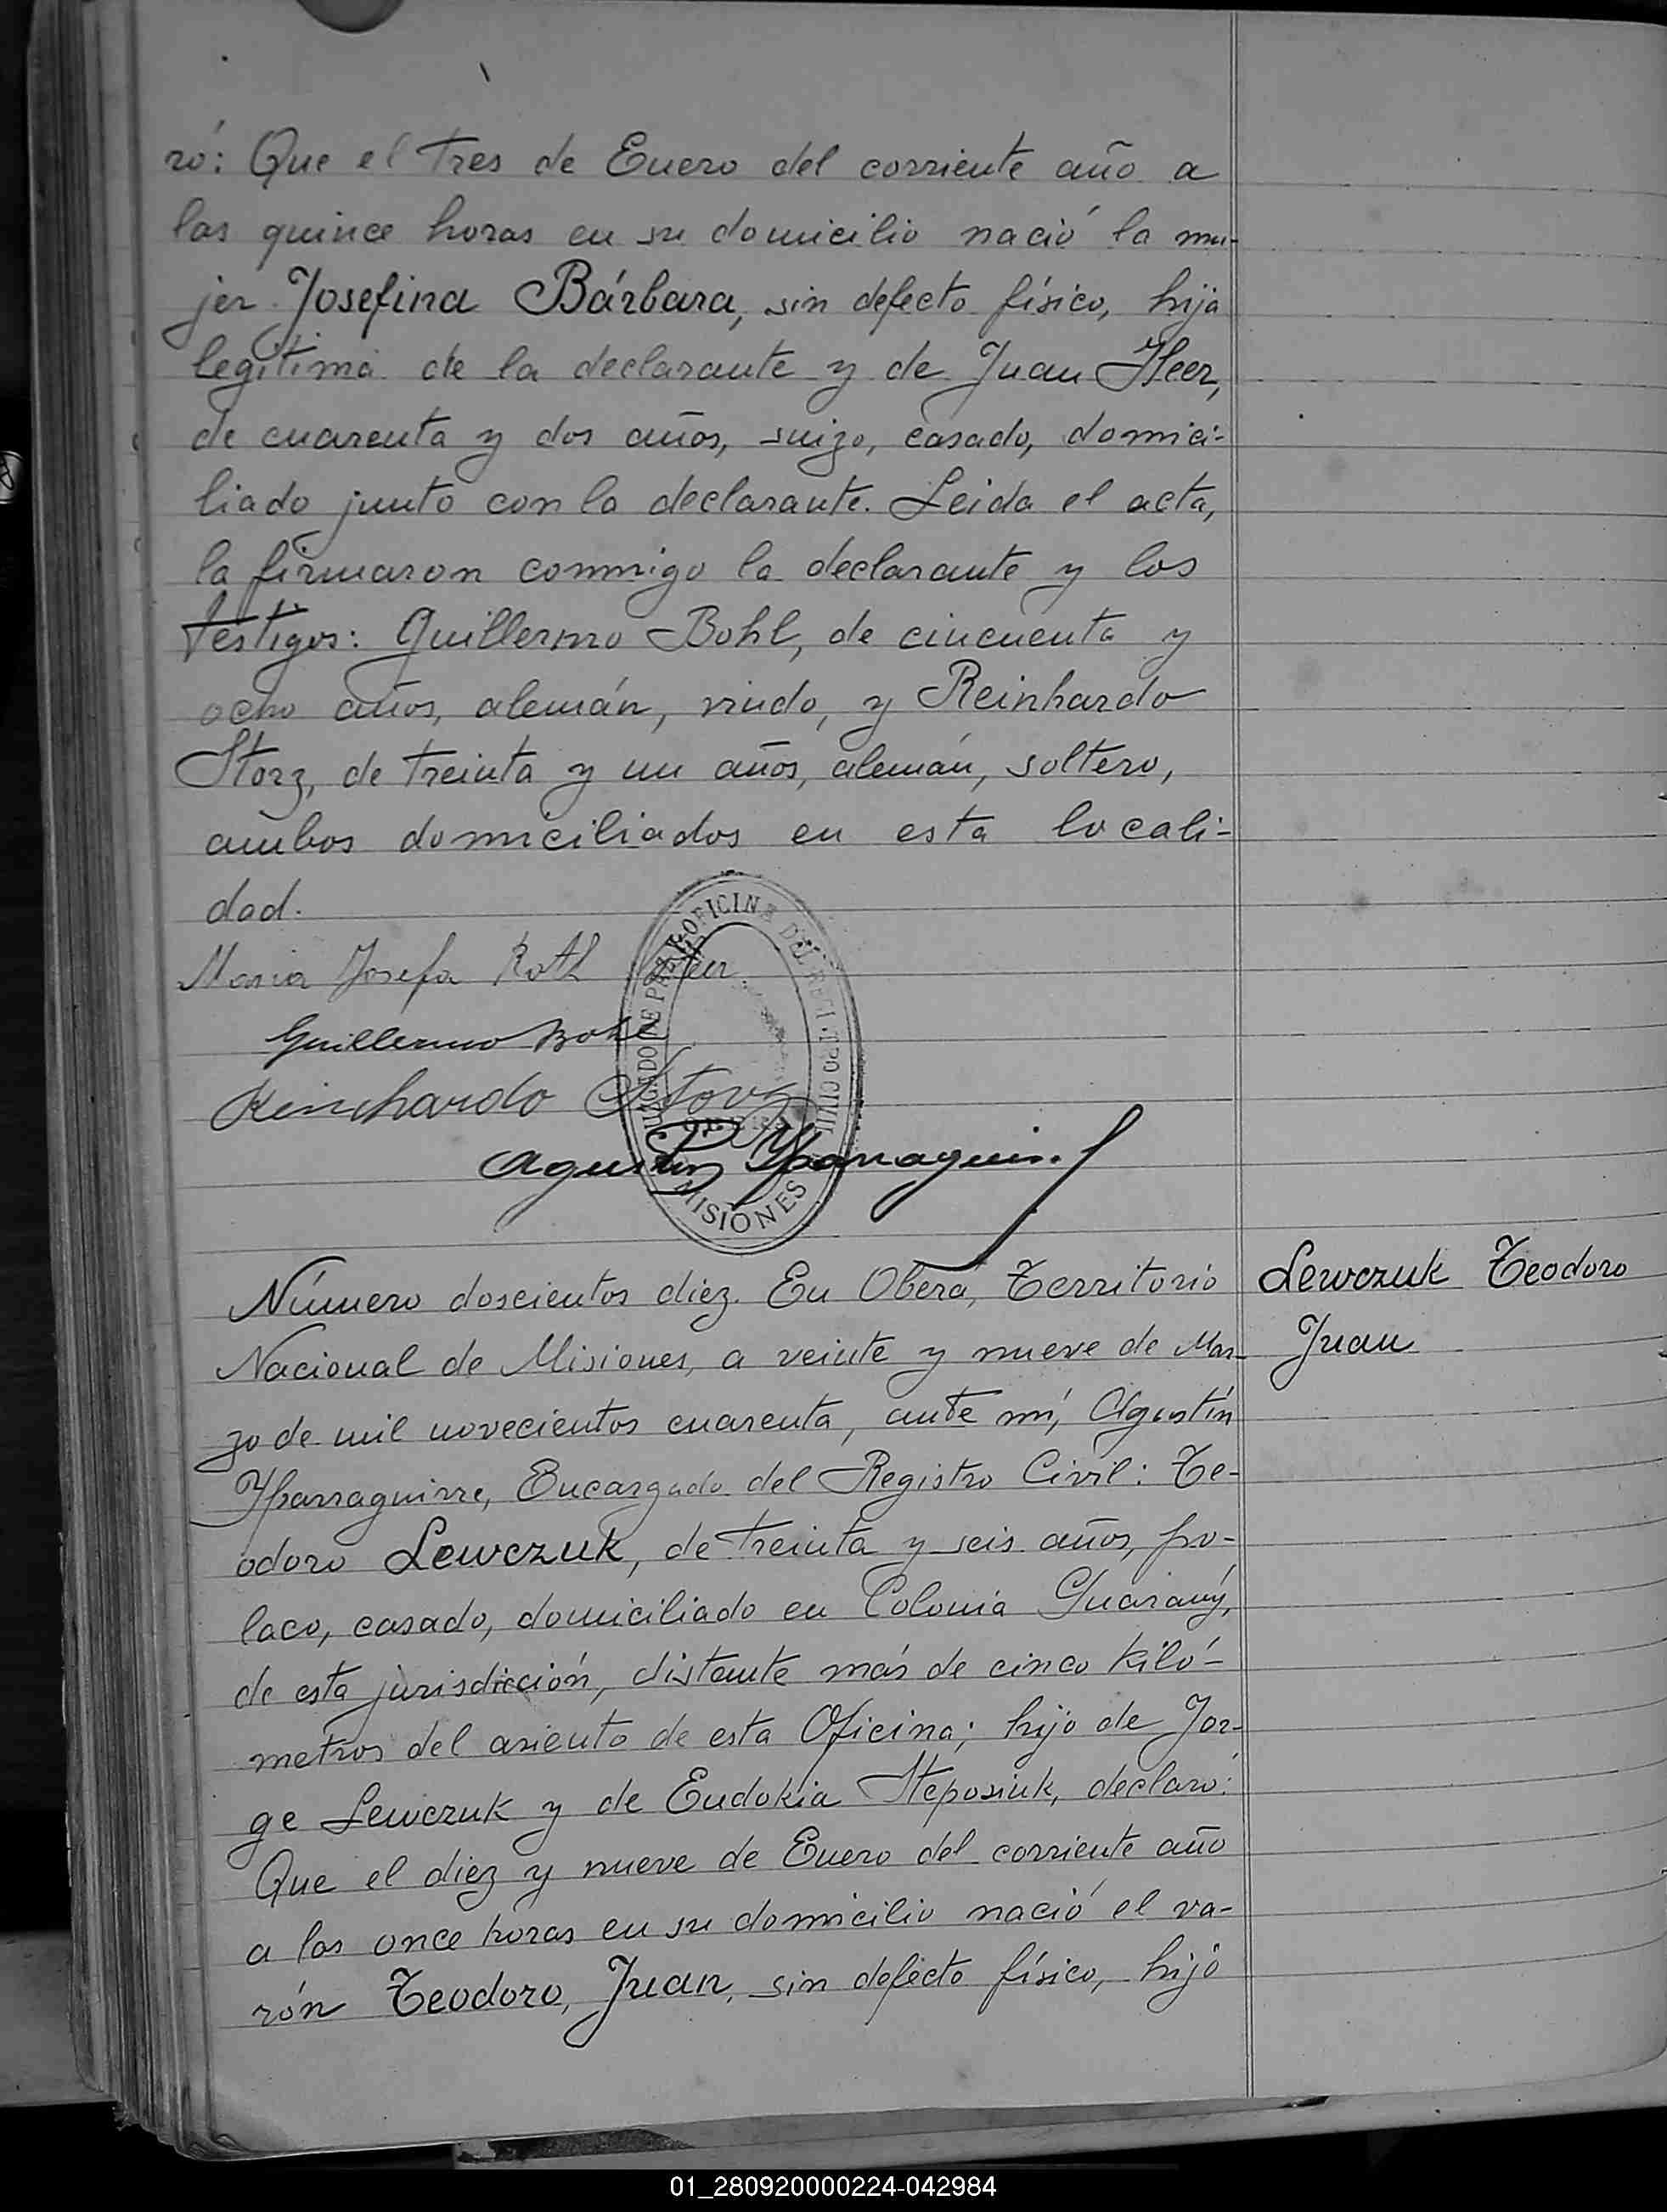 ró: Que el tres de Enero del corriente año a
las quince horas en su domicilio nació la mu-
jer Josefina Bárbara, sin defecto físico, hija
legítima de la declarante y de Juan Heer,
de cuarenta y dos años, suizo, casado, domici-
liado junto con la declarante. Leida el acta,
la firmaron conmigo la declarante y los
testigos: Guillermo Bohl, de cincuenta y
ocho años, alemán, viudo, y Reinhardo
Storz, de treinta y un años, alemán, soltero,
ambos domiciliados en esta locali-
dad.
Maria Josefa Roth Heer
Guillermo Bohl
Reinhardo Storz
Agustin Yparraguirre
OFICINA DEL REGISTRO CIVIL
MISIONES
Número doscientos diez. En Oberá, Territorio
Nacional de Misiones, a veinte y nueve de Mar-
zo de mil novecientos cuarenta, ante mí, Agustín
Yparraguirre, Encargado del Registro Civil: Te-
odoro Lewczuk, de treinta y seis años, po-
laco, casado, domiciliado en Colonia Guaraný,
de esta jurisdicción, distante más de cinco kiló-
metros del asiento de esta Oficina; hijo de Jor-
ge Lewczuk y de Eudokia Steposiuk, declaró:
Que el diez y nueve de Enero del corriente año
a las once horas en su domicilio nació el va-
rón Teodoro, Juan, sin defecto físico, hijo
Lewczuk Teodoro
Juan
01_280920000224-042984